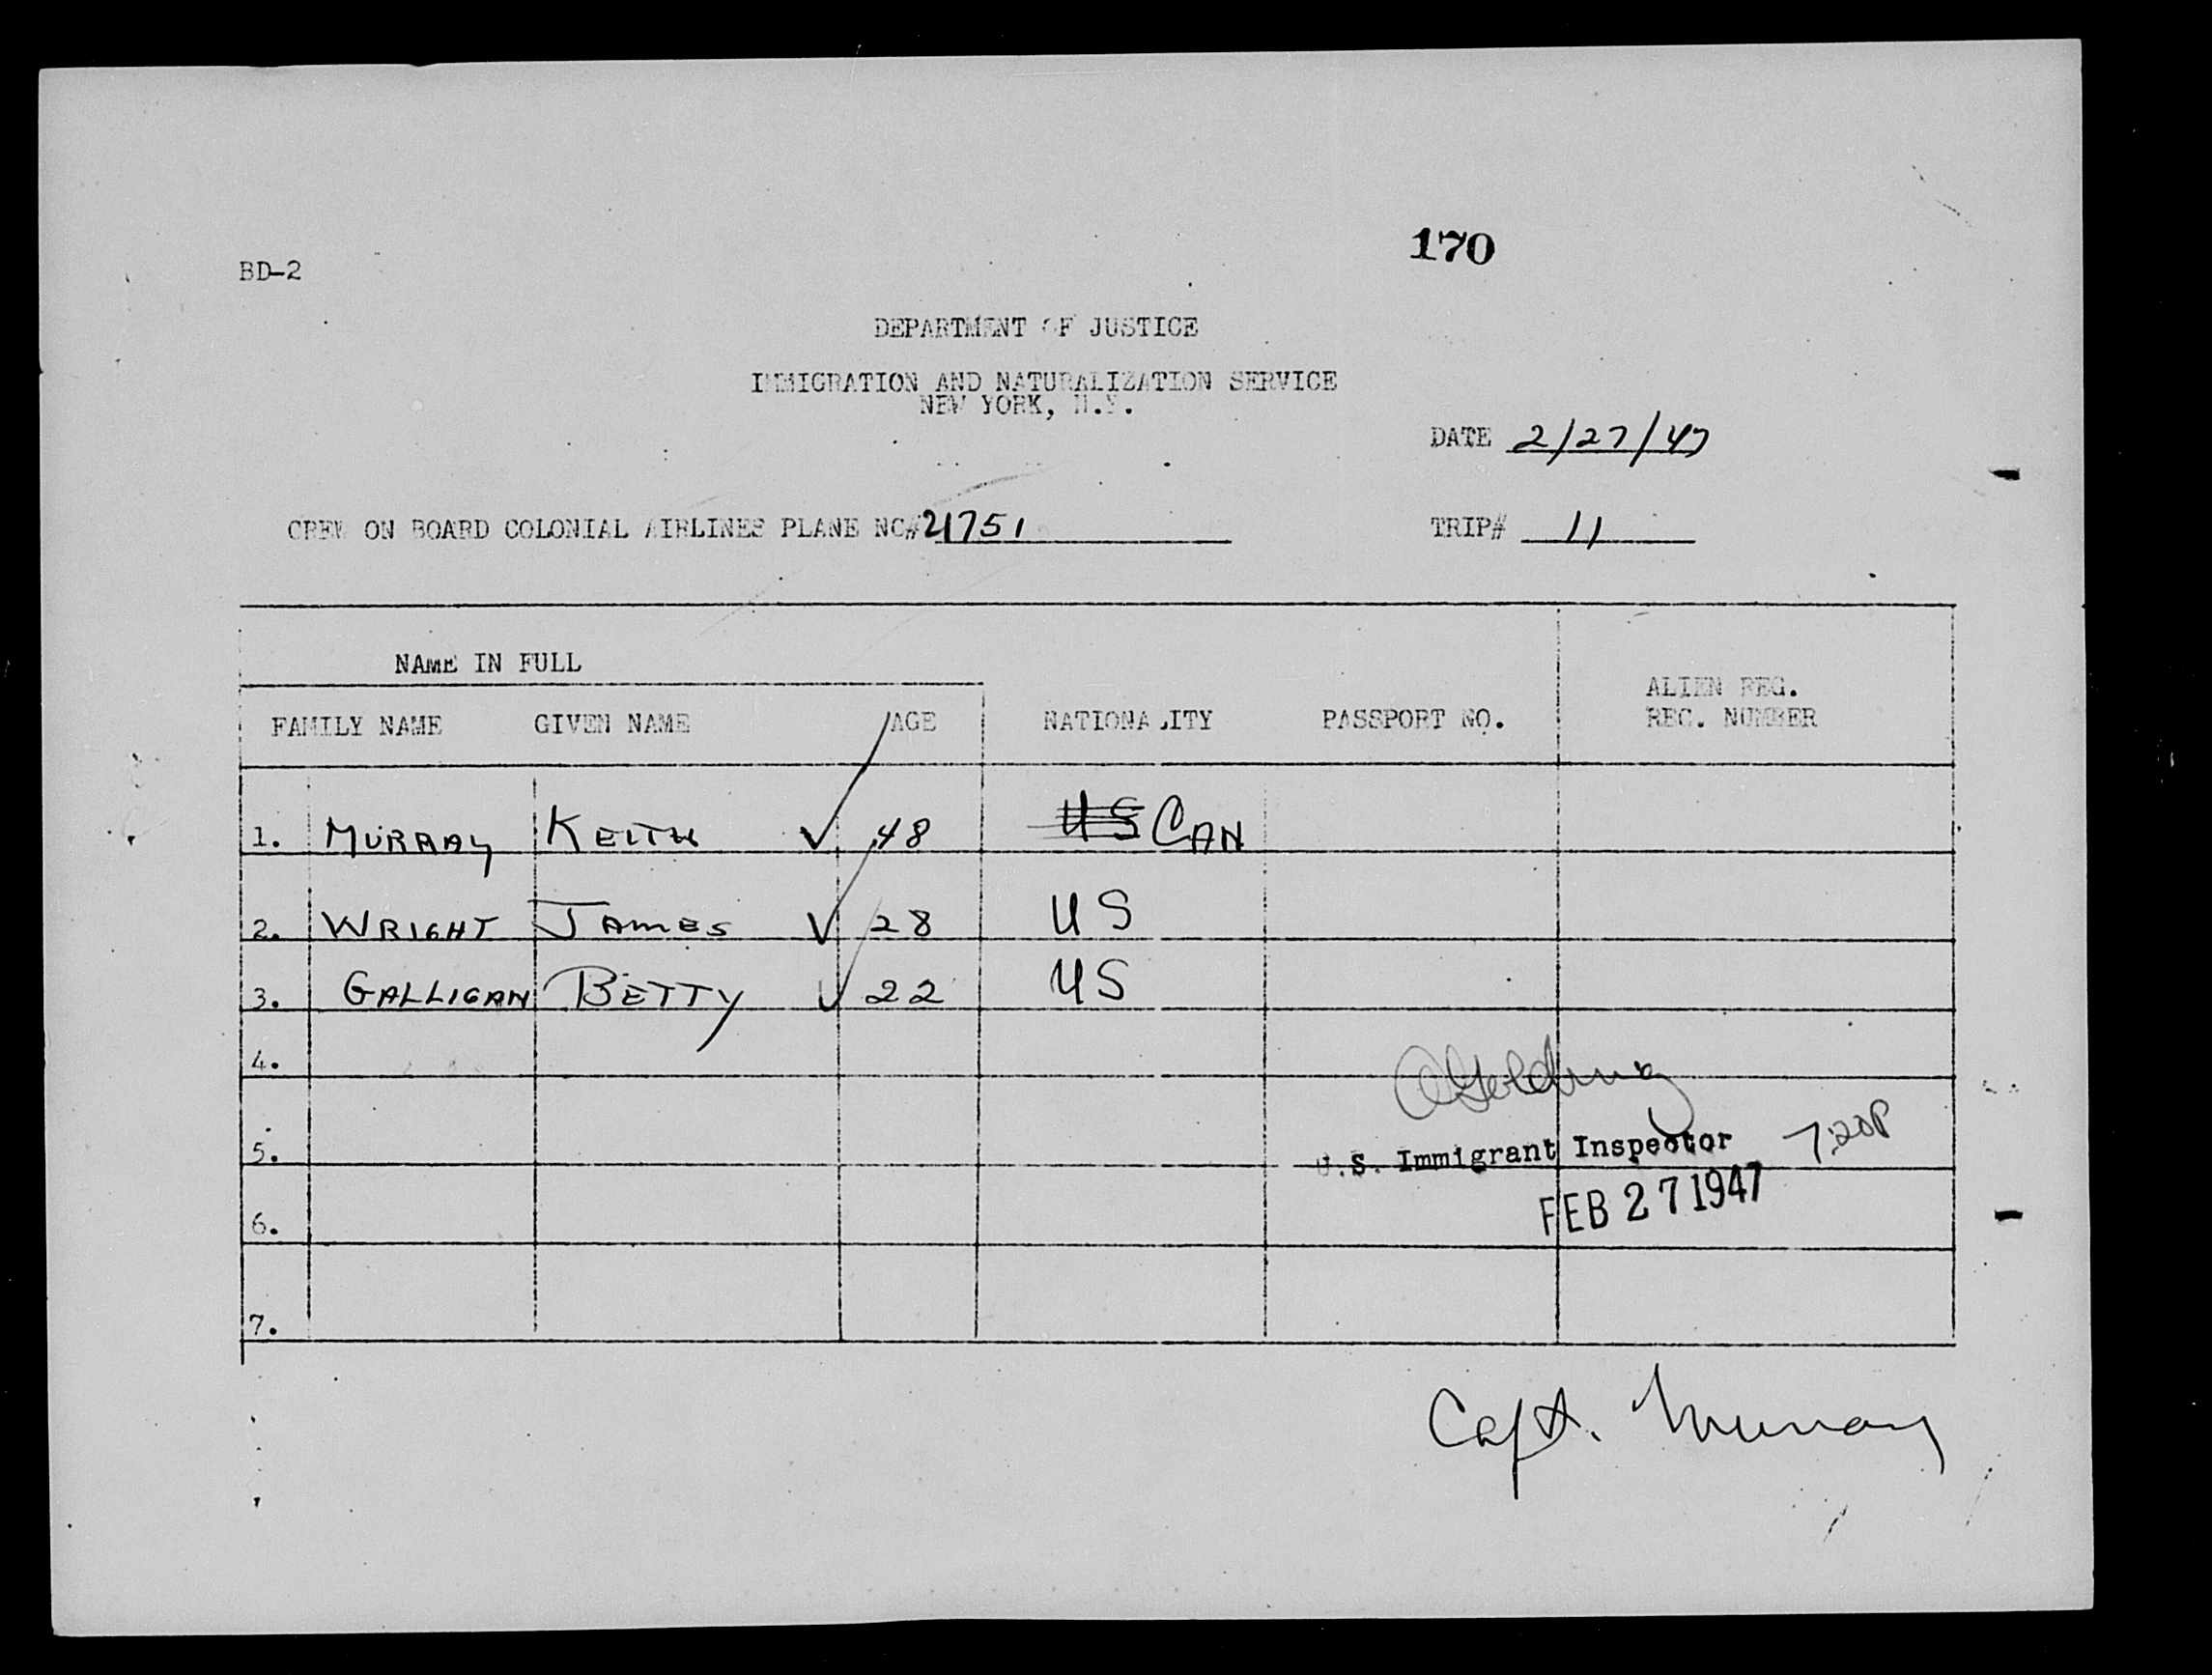 170
BD-2
DEPARTMENT OF JUSTICE
IMMIGRATION AND NATURALIZATION SERVICE
NEW YORK, N.Y.
DATE 2/27/47
CREW ON BOARD COLONIAL AIRLINES PLANE NC# 21751 TRIP# 11
NAME IN FULL
FAMILY NAME GIVEN NAME AGE NATIONALITY PASSPORT NO. ALIEN REG. REC. NUMBER
1. MURRAY KEITH ✓ 48 ~~US~~ CAN
2. WRIGHT JAMES ✓ 28 US
3. GALLIGAN BETTY ✓ 22 US
4.
5. U.S. Immigrant Inspector 7:20P
6. FEB 27 1947
7.
Capt. Murray